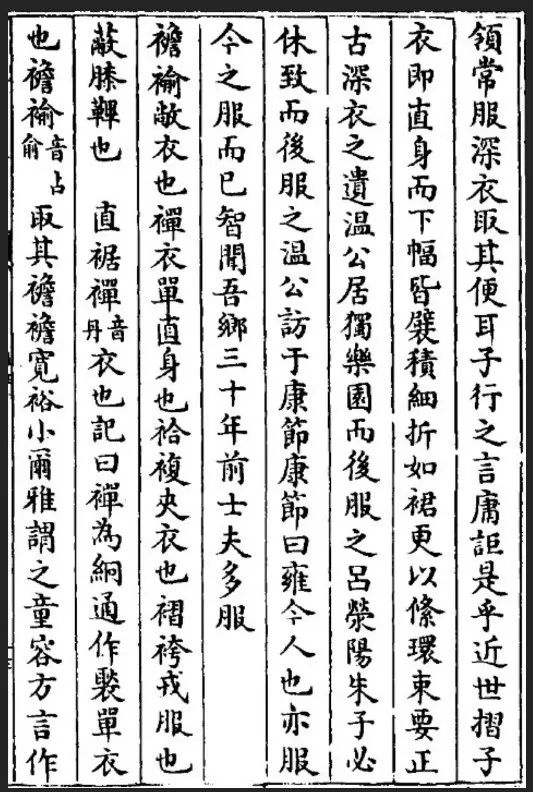 領常服深衣取其便耳子行之言庸詎是乎近世摺子
衣即直身而下幅皆襞積細折如裙更以絛環束要正
古深衣之遺温公居獨樂園而後服之呂滎陽朱子必
休致而後服之温公訪于康節康節曰雍今人也亦服
今之服而已智聞吾鄉三十年前士夫多服
襜褕敞衣也襌衣單直身也袷複夾衣也褶袴戎服也
蔽膝鞸也 直裾襌音丹衣也記曰襌為絅通作褧單衣
也襜褕音占俞取其襜襜寬裕小爾雅謂之童容方言作